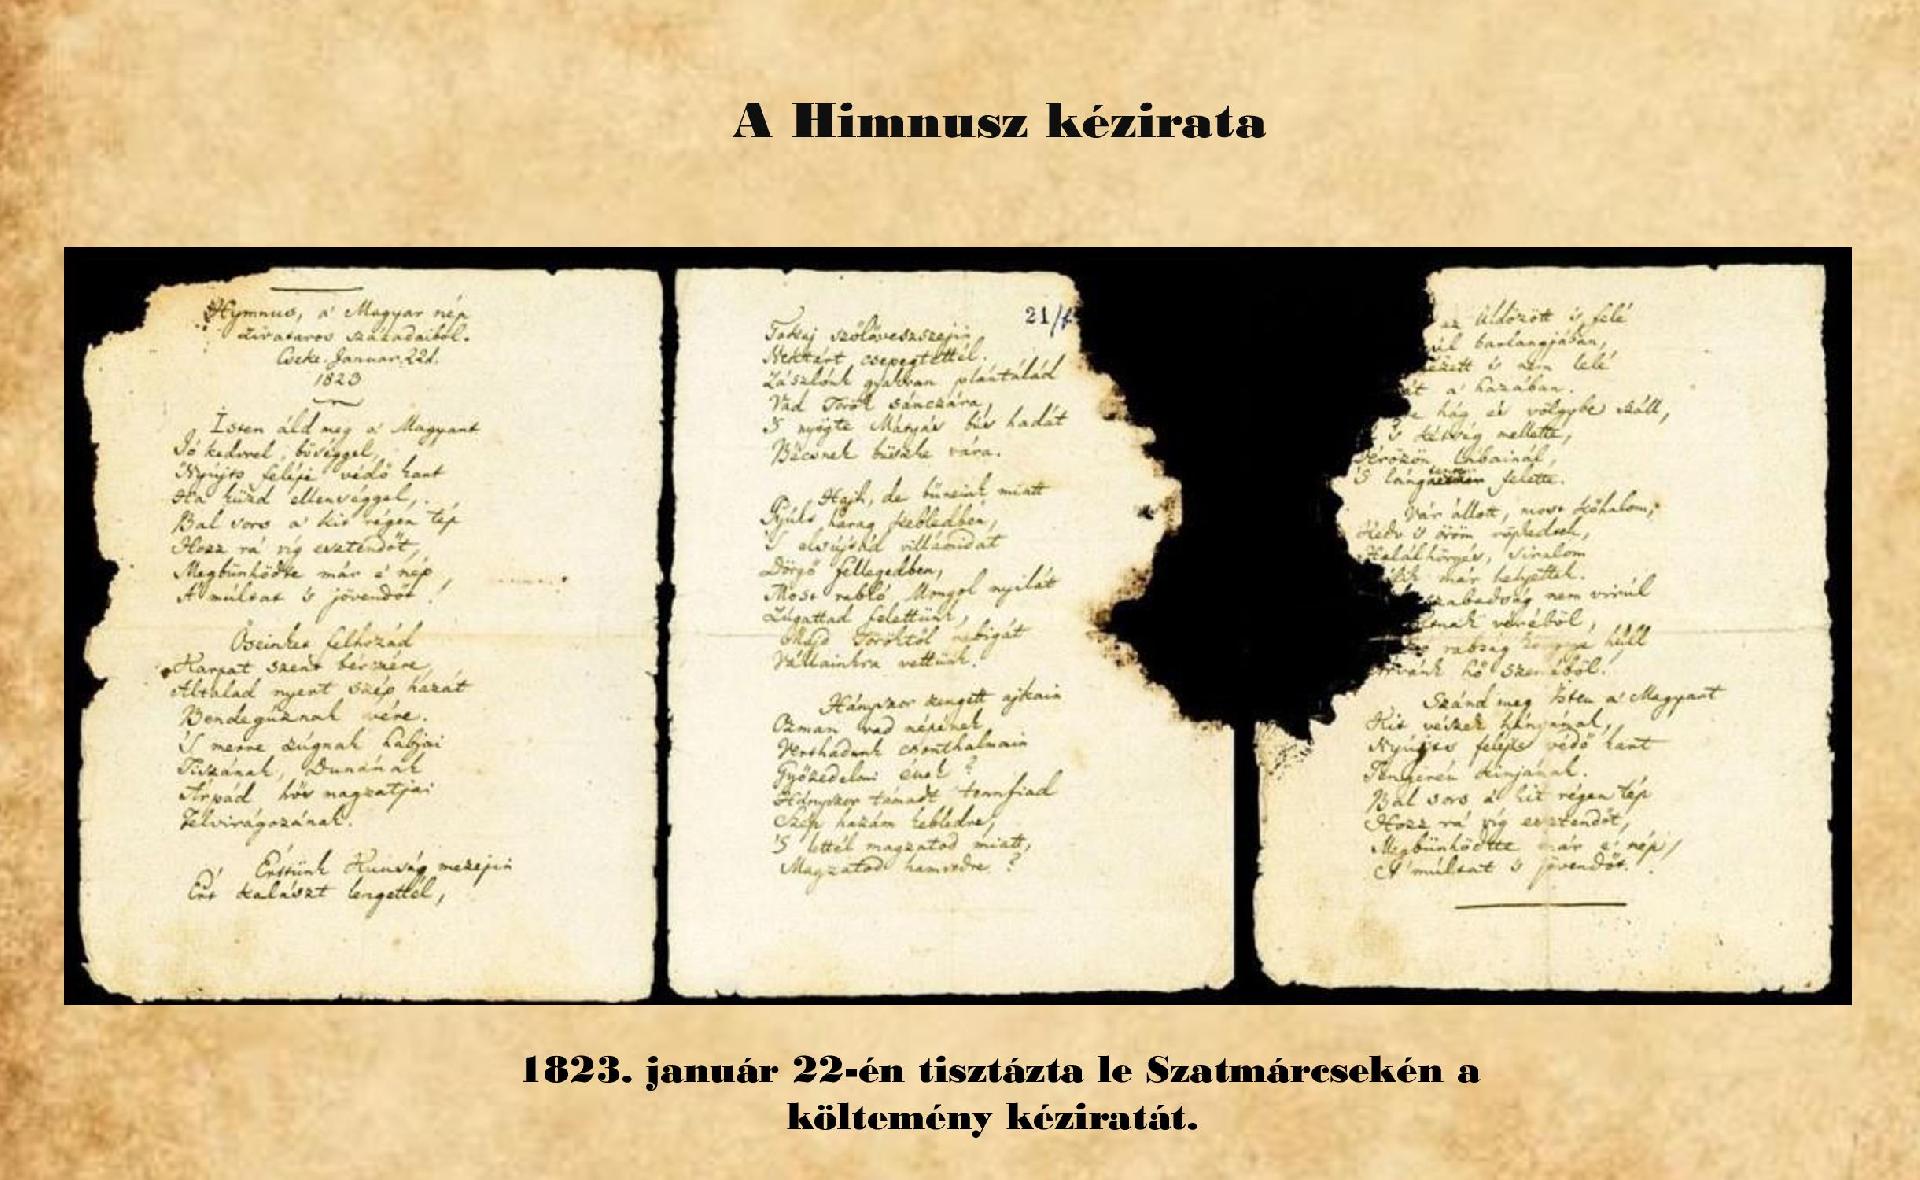 A Himnusz kézirata
Hymnus, a' Magyar nép
zivataros századaiból.
Cseke. Januar. 22d.
1823
Isten áld meg a' Magyart
Jó kedvvel, bőséggel,
Nyújts feléje védő kart
Ha küzd ellenséggel,
Bal sors a' kit régen tép
Hozz rá víg esztendőt,
Megbűnhődte már e' nép
A' múltat 's jövendőt!
Őseinket felhozád
Kárpát szent bérczére,
Általad nyert szép hazát
Bendegúznak vére.
'S merre zúgnak habjai
Tiszának, Dunának
Árpád hős magzatjai
Felvirágozának.
Értünk Kunság mezejin
Ért kalászt lengettél,
21/
Tokaj szőlővesszejin
Nektárt csepegtettél.
Zászlónk gyakran plántálád
Vad Török sánczára,
'S nyögte Mátyás bús hadát
Bécsnek büszke vára.
Hajh, de bűneink miatt
Gyúlt harag kebledben,
'S elsújtád villámidat
Dörgő fellegedben,
Most rabló Mongol nyilát
Zúgattad felettünk,
Majd Töröktől rabigát
Vállainkra vettünk.
Hányszor zengett ajkain
Ozman vad népének
Vert hadunk csonthalmain
Győzedelmi ének?
Hányszor támadt tennfiad
Szép hazám kebledre,
'S lettél magzatod miatt,
Magzatod hamvedre?
az üldözött 's felé
barlangjában,
nézett 's nem lelé
a' hazában.
hág és völgybe száll,
's kétség mellette,
Vérözön lábainál,
'S lángtenger felette.
Vár állott, most kőhalom,
Kedv 's öröm röpkedtek,
Halálhörgés, siralom
már helyettek.
szabadság nem virúl
véréből,
rabság könnye hull
hő szeméből!
Szánd meg Isten a' Magyart
Kit vészek hányának,
Nyújts feléje védő kart
Tengerén kínjának.
Bal sors a' kit régen tép
Hozz rá víg esztendőt,
Megbűnhődte már e' nép
A' múltat 's jövendőt.
1823. január 22-én tisztázta le Szatmárcsekén a
költemény kéziratát.